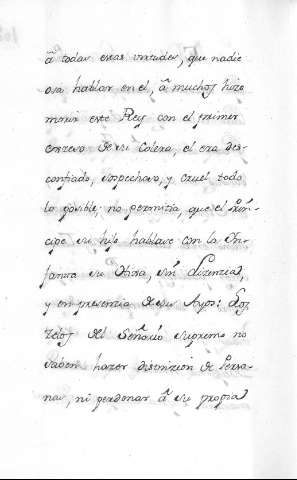 â todas estas virtudes, que nadie
osa hablar en el, â muchos hizo
morir este Rey con el primer
exceso de su Colera, el era des-
confiado, sospechoso, y cruel todo
lo posible; no permitia, que el Prin-
cipe su hijo hablase con la In-
fanta su Thia, sin Lizenzia,
y en presencia de su Ayo: Los
Zelos del Señorio supremo no
saben hazer distinzion de Perso-
nas, ni perdonar â su propia